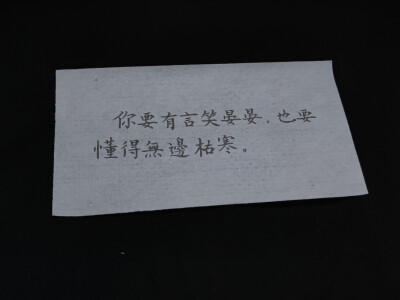 你要有言笑晏晏，也要
懂得無邊枯寒。